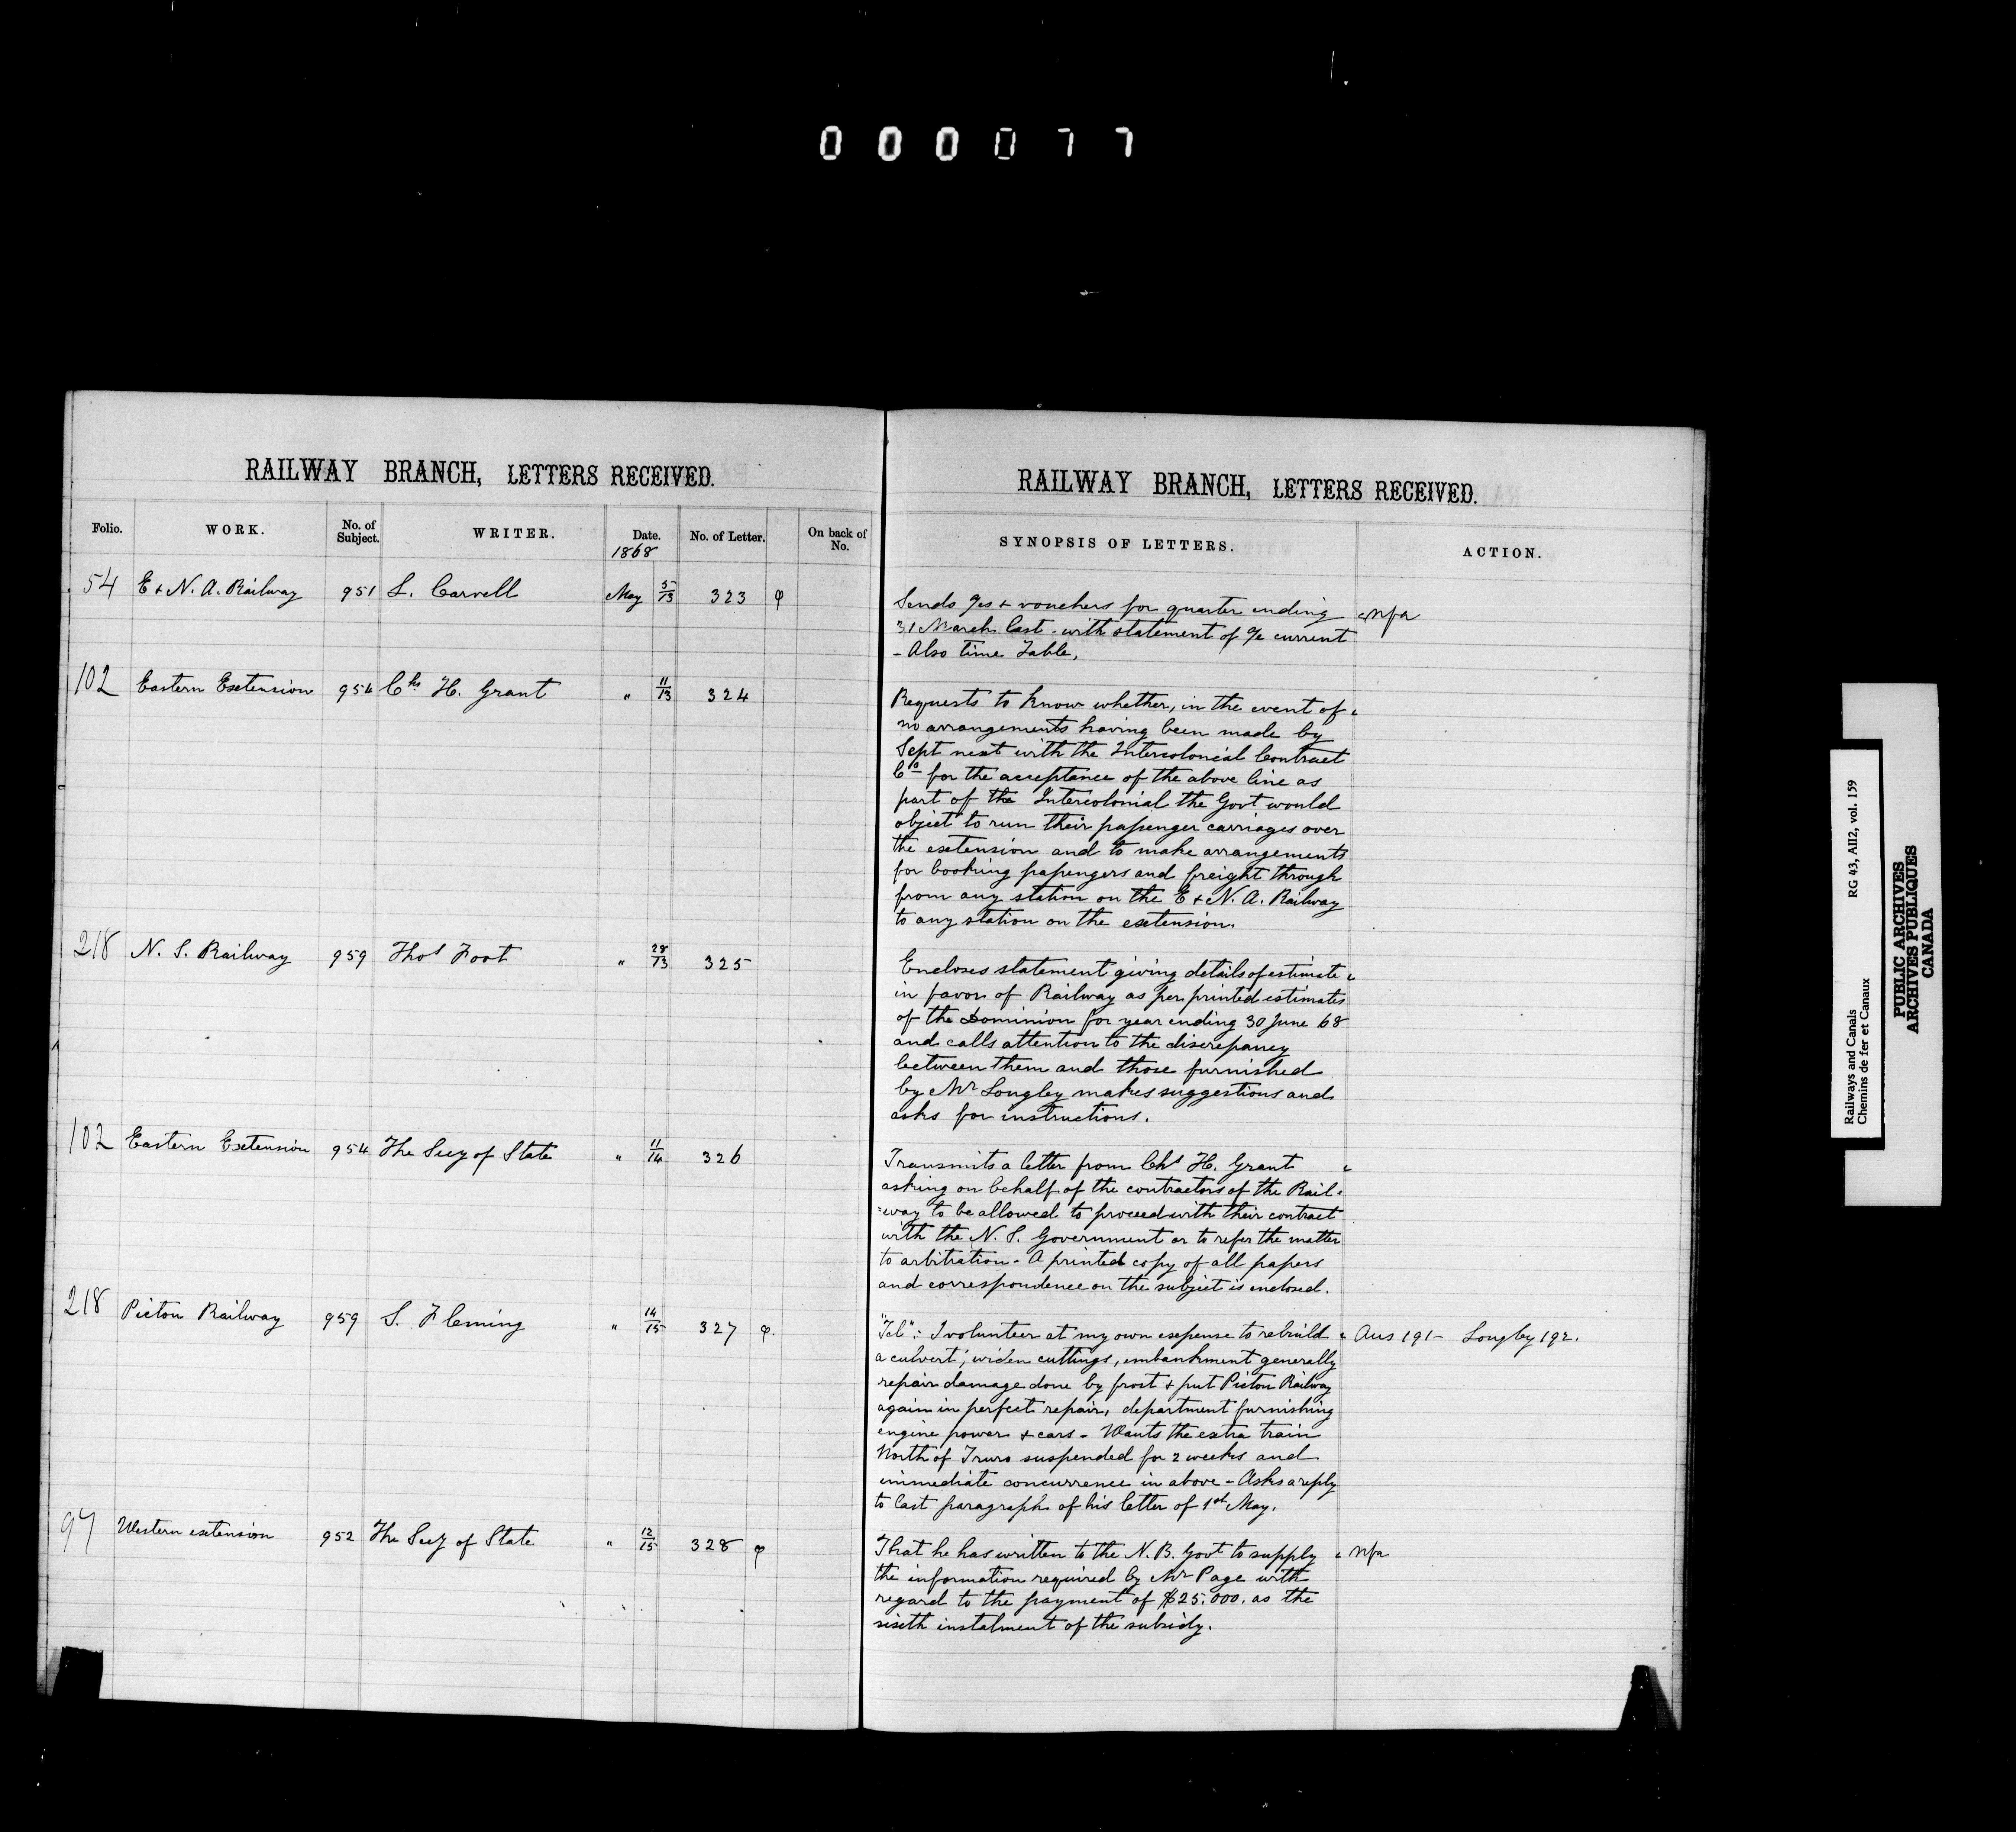 000077
RAILWAY BRANCH, LETTERS RECEIVED.
Folio. WORK. No. of Subject. WRITER. Date. 1868 No. of Letter. On back of No.
54 E & N. A. Railway 951 L. Carvell May 5/13 323 φ
102 Eastern Extension 954 Chs H. Grant " 11/13 324
218 N. S. Railway 959 Thos Foot " 28/13 325
102 Eastern Extension 954 The Secy of State " 11/14 326
218 Pictou Railway 959 S. Fleming " 14/15 327 φ.
97 Western extension 952 The Secy of State " 12/15 328 φ
RAILWAY BRANCH, LETTERS RECEIVED.
SYNOPSIS OF LETTERS. ACTION.
Sends %s & vouchers for quarter ending nfa
31 March last. with statement of a/c current
- Also time Table,
Requests to know whether, in the event of
no arrangements having been made by
Sept next with the Intercolonial Contract
Co for the acceptance of the above line as
part of the Intercolonial the Govt would
object to run their passenger carriages over
the extension and to make arrangements
for booking passengers and freight through
from any station on the E & N. A. Railway
to any station on the extension.
Encloses statement giving details of estimate
in favor of Railway as per printed estimates
of the Dominion for year ending 30 June 68
and calls attention to the discrepancy
between them and those furnished
by Mr Longley makes suggestions and
asks for instructions.
Transmits a letter from Chs H. Grant
asking on behalf of the contractors of the Rail=
=way to be allowed to proceed with their contract
with the N. S. Government or to refer the matter
to arbitration - A printed copy of all papers
and correspondence on the subject is enclosed.
"Tel": I volunteer at my own expense to rebuild Ans 191 - Longley 192.
a culvert, widen cuttings, embankment generally
repair damage done by frost & put Pictou Railway
again in perfect repair, department furnishing
engine power & cars - Wants the extra train
North of Truro suspended for 2 weeks and
immediate concurrence in above - Asks a reply
to last paragraph of his letter of 1st May.
That he has written to the N. B. Govt to supply nfa
the information required by Mr Page with
regard to the payment of $25.000. as the
sixth instalment of the subsidy.
Railways and Canals RG 43, AII2, vol. 159
Chemins de fer et Canaux
PUBLIC ARCHIVES
ARCHIVES PUBLIQUES
CANADA